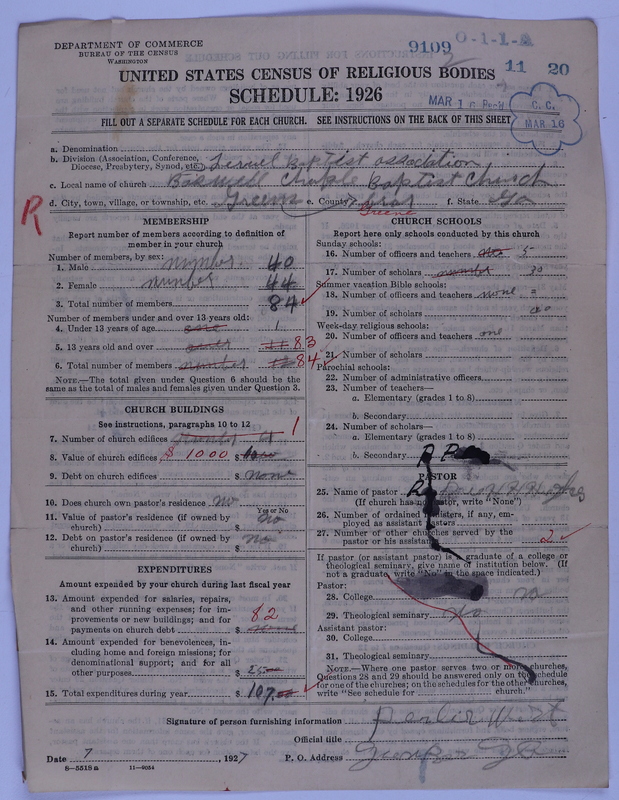 DEPARTMENT OF COMMERCE
BUREAU OF THE CENSUS
WASHINGTON
9109
0-1-1-2
11 20
UNITED STATES CENSUS OF RELIGIOUS BODIES
SCHEDULE: 1926
MAR 16 Rec'd
C. C.
MAR 16
FILL OUT A SEPARATE SCHEDULE FOR EACH CHURCH. SEE INSTRUCTIONS ON THE BACK OF THIS SHEET
a. Denomination
b. Division (Association, Conference, Diocese, Presbytery, Synod, etc.) Baptist association
c. Local name of church Baptist Church
d. City, town, village, or township, etc. Greens e. County Greene f. State Ga
R
MEMBERSHIP
Report number of members according to definition of member in your church
Number of members, by sex:
1. Male number 40
2. Female number 44
3. Total number of members 84
Number of members under and over 13 years old:
4. Under 13 years of age 1
5. 13 years old and over 83
6. Total number of members number 84
NOTE.—The total given under Question 6 should be the same as the total of males and females given under Question 3.
CHURCH BUILDINGS
See instructions, paragraphs 10 to 12
7. Number of church edifices 1
8. Value of church edifices $ 1000 $
9. Debt on church edifices $ None
10. Does church own pastor's residence No
Yes or No
11. Value of pastor's residence (if owned by church) $ No
12. Debt on pastor's residence (if owned by church) $ No
EXPENDITURES
Amount expended by your church during last fiscal year
13. Amount expended for salaries, repairs, and other running expenses; for improvements or new buildings; and for payments on church debt $ 82
14. Amount expended for benevolences, including home and foreign missions; for denominational support; and for all other purposes $ 25.00
15. Total expenditures during year $ 107.00
CHURCH SCHOOLS
Report here only schools conducted by this church
Sunday schools:
16. Number of officers and teachers 5
17. Number of scholars number 30
Summer vacation Bible schools:
18. Number of officers and teachers none
19. Number of scholars
Week-day religious schools:
20. Number of officers and teachers one
21. Number of scholars
Parochial schools:
22. Number of administrative officers
23. Number of teachers—
a. Elementary (grades 1 to 8)
b. Secondary
24. Number of scholars—
a. Elementary (grades 1 to 8)
b. Secondary
PASTOR
25. Name of pastor
(If church has no pastor, write "None")
26. Number of ordained ministers, if any, employed as assistant pastors
27. Number of other churches served by the pastor or his assistant 2
If pastor (or assistant pastor) is a graduate of a college or theological seminary, give name of institution below. (If not a graduate, write "No" in the space indicated.)
Pastor:
28. College no
29. Theological seminary No
Assistant pastor:
30. College
31. Theological seminary
NOTE.—Where one pastor serves two or more churches, Questions 28 and 29 should be answered only on the schedule for one of the churches; on the schedules for the other churches, write "See schedule for church."
Signature of person furnishing information West
Official title
Date 7, 1927 P. O. Address Ga
8—5518a 11—9034